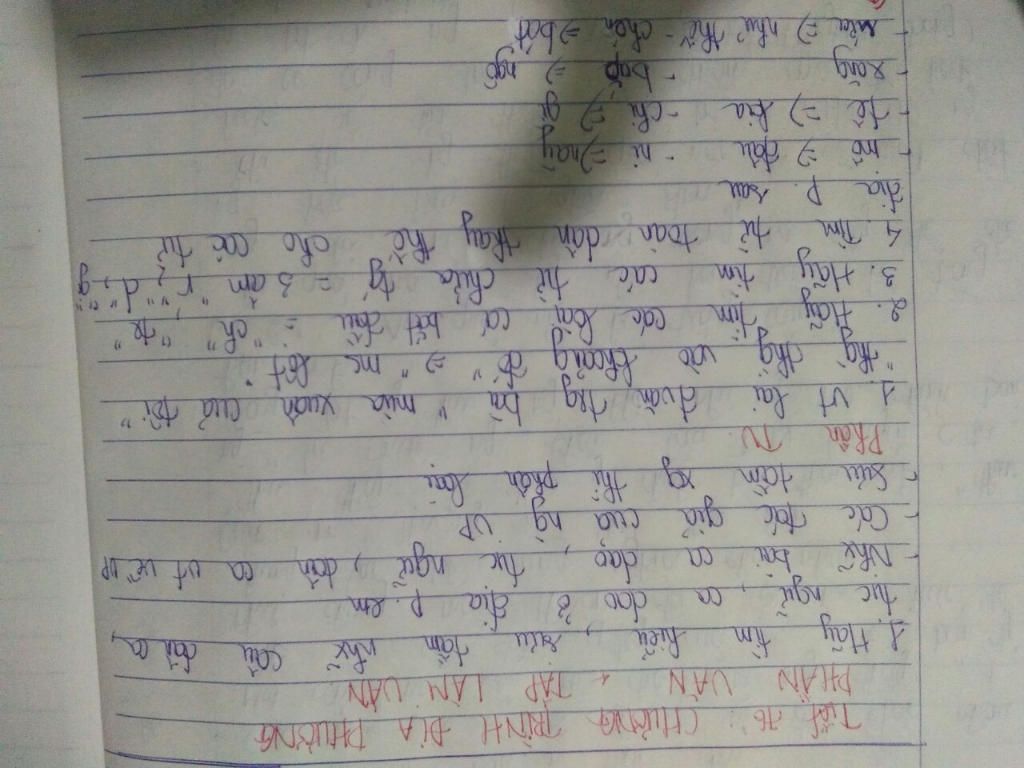 Tiết 70: CHƯƠNG TRÌNH ĐỊA PHƯƠNG
PHẦN VĂN + TẬP LÀM VĂN
1. Hãy tìm hiểu, sưu tầm nhữ câu dân ca,
tục ngữ, ca dao ở địa p. em
- Nhữ bài ca dao, tục ngữ, dân ca vt về ĐP
- Các tác giả của ng ĐP
- Sưu tầm xg thì phân loại.
PHẦN TV
1. vt lại đvăn trg bài "mùa xuân của tôi"
" thg thg vào khoảng đó" => " mc lột".
2. Hãy tìm các loại cá bắt đầu = "ch" "tr"
3. Hãy tìm các từ chứa tg = 3 âm "r", "d", "g"
4. Tìm từ toàn dân thay thế cho các từ
địa p. sau
- mô => đâu - ni => này
- tê => kia - chi => gì
- răng - bắp => ngô
- rứa => như thế - chén => bát